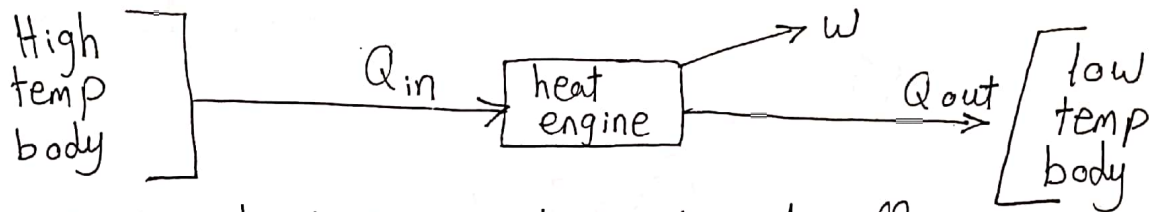 High
temp
body
Qin
heat
engine
W
Qout
low
temp
body